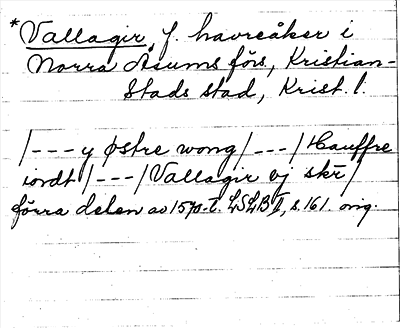 *Vallagir, f. havreåker i
Norra Åsums förs, Kristian-
stads stad, Krist. l.
/---y østre wong/---/Hauffre
iordt/---/Vallagir ej skr/
förra delen av 1570-t. LSLB II, s. 161. orig.